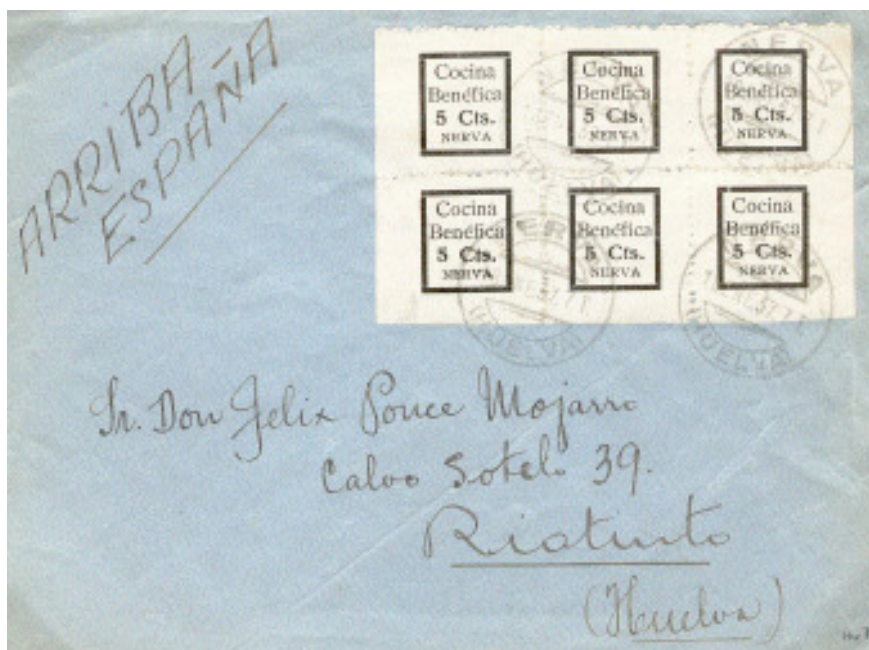 ARRIBA
ESPAÑA
Cocina
Benéfica
5 Cts.
NERVA
Cocina
Benéfica
5 Cts.
NERVA
Cocina
Benéfica
5 Cts.
NERVA
Cocina
Benéfica
5 Cts.
NERVA
Cocina
Benéfica
5 Cts.
NERVA
Cocina
Benéfica
5 Cts.
NERVA
NERVA
(HUELVA)
(HUELVA)
Sr. Don Felix Ponce Mojarro
Calvo Sotelo 39.
Riotinto
(Huelva)